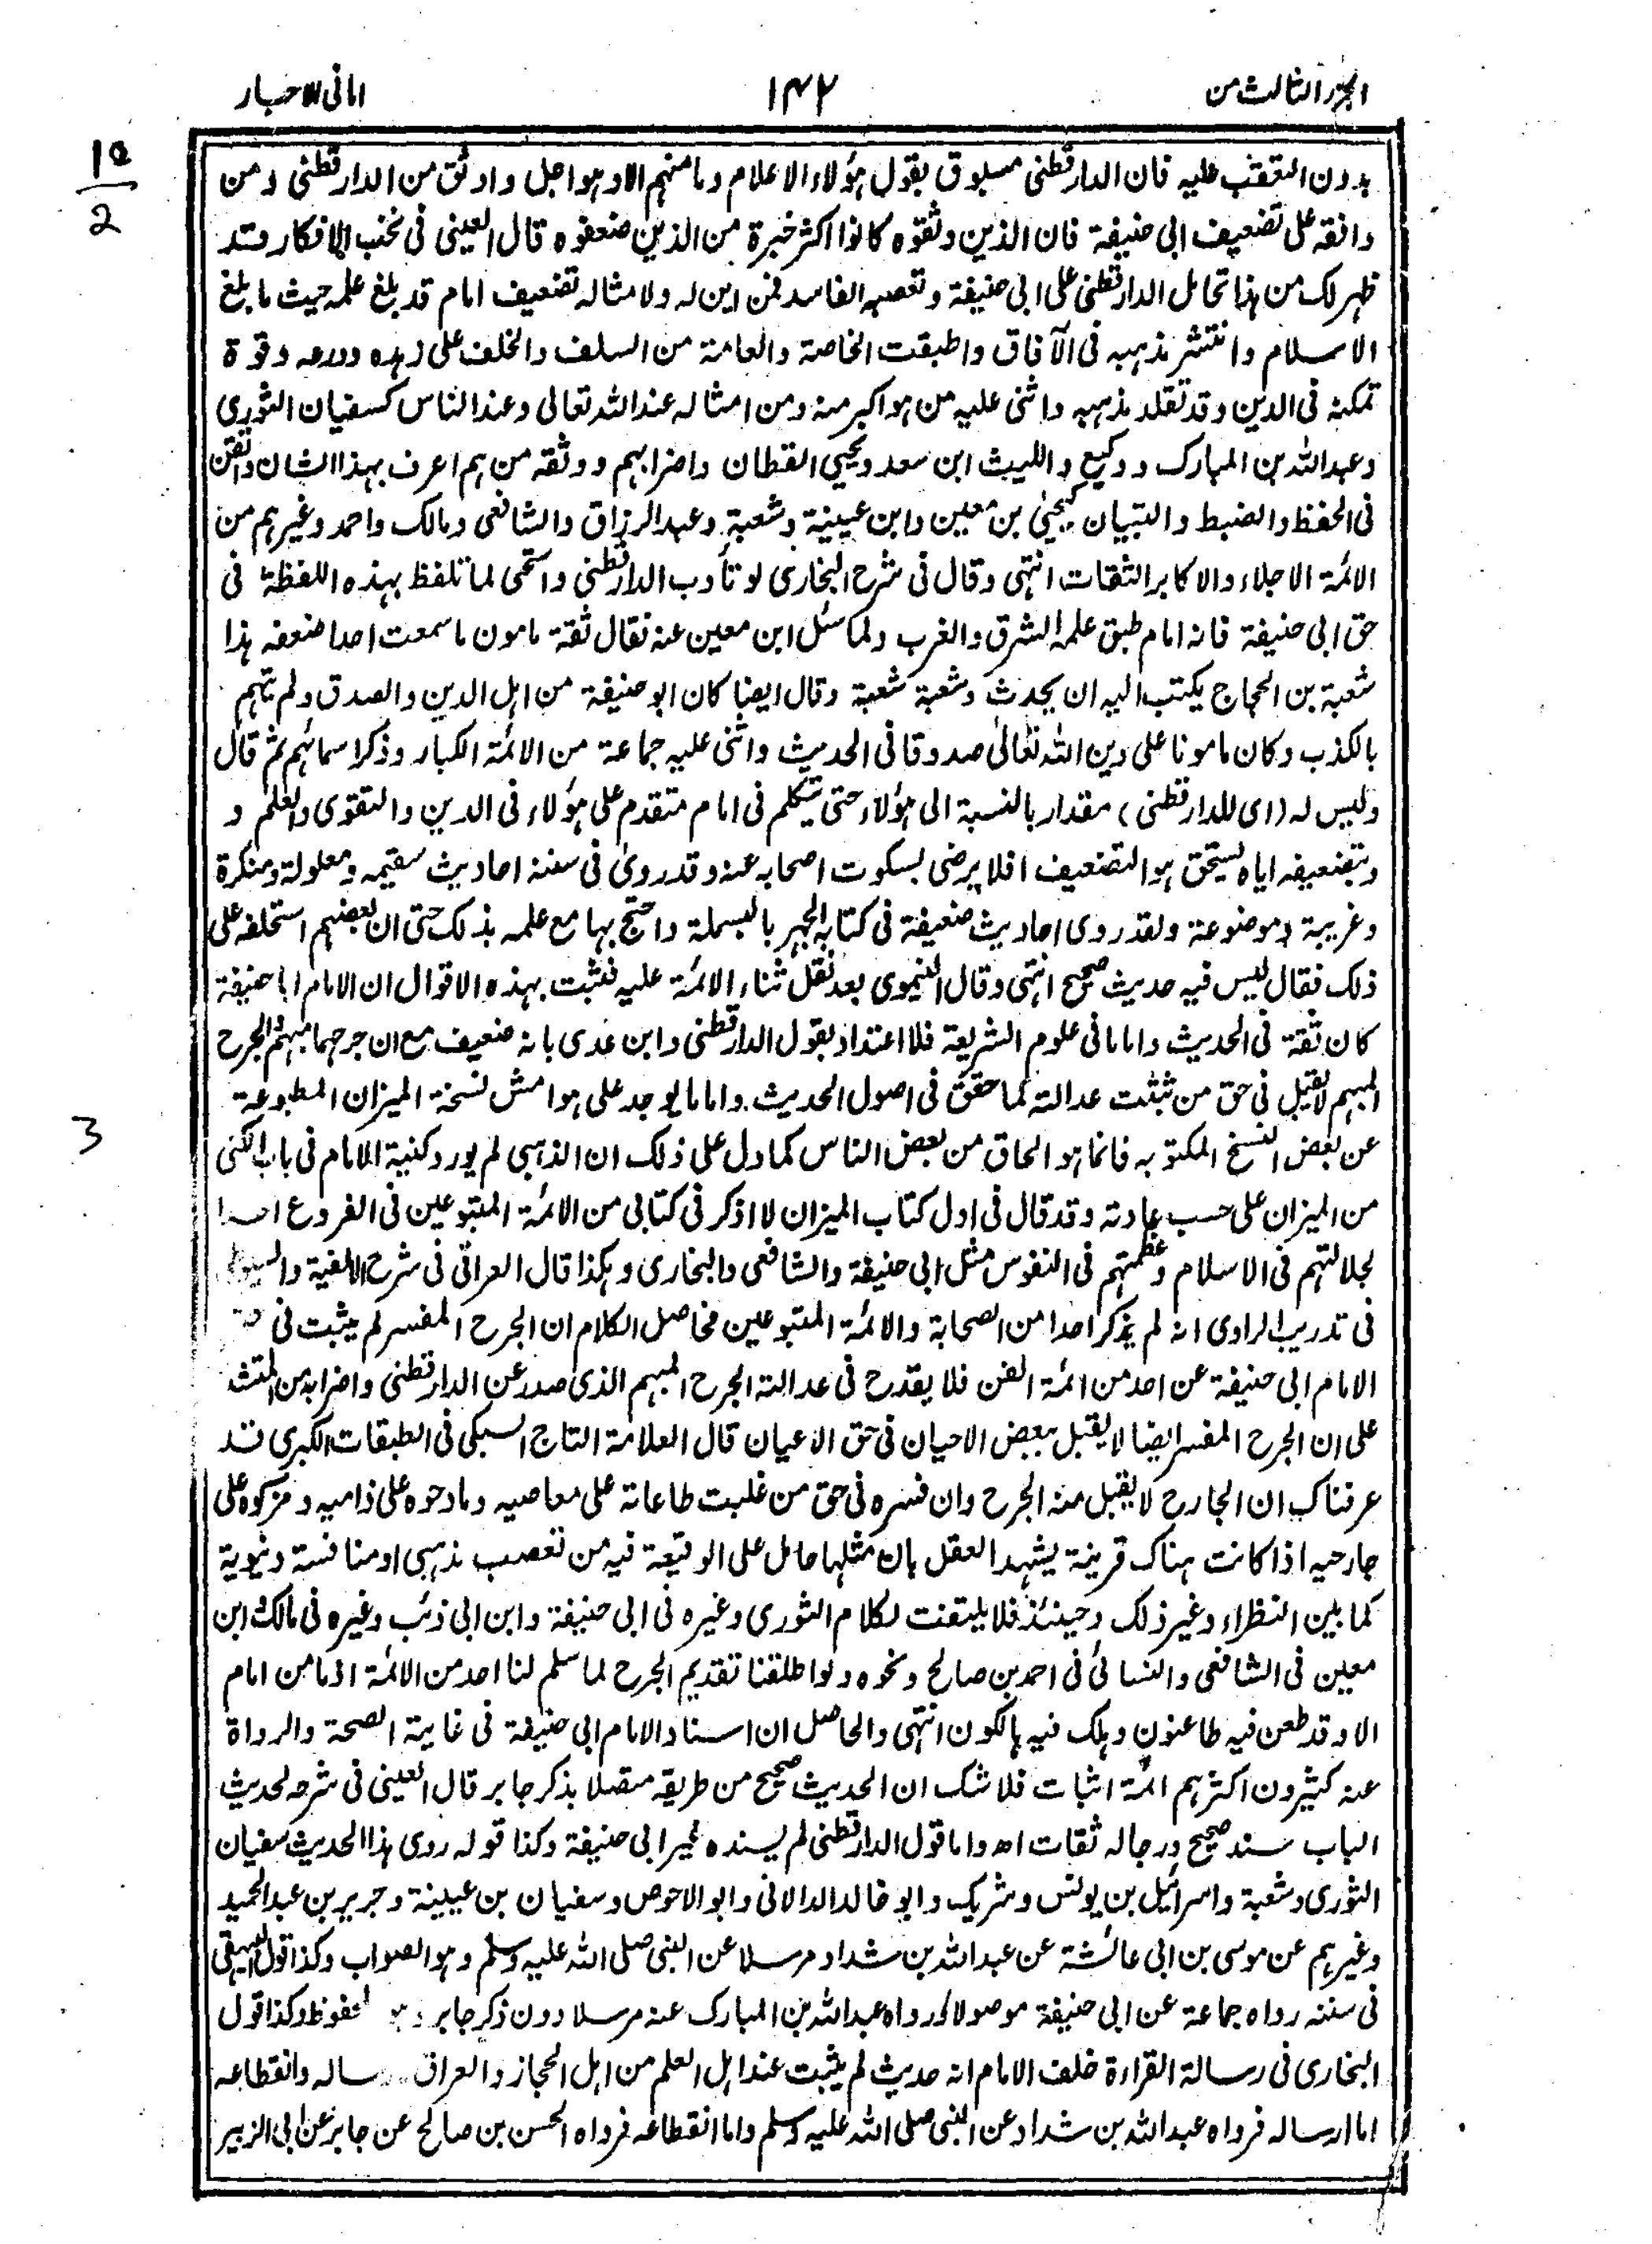 الجزء الثالث من
۱۴۲
امانی الاحبار
بدون التعقب علیه فان الدارقطنی مسبوق بقول هؤلاء الاعلام وما منهم الا وهو اجل واوثق من الدارقطنی ومن
وافقه علی تضعیف ابی حنیفة فان الذین وثقوه کانوا اکثر خبرة من الذین ضعفوه قال العینی فی نخب الافکار وقد
ظهر لک من هذا تحامل الدارقطنی علی ابی حنیفة وتعصبه الفاسد فمن این له ولامثاله تضعیف امام قد بلغ علمه حیث ما بلغ
الاسلام وانتشر مذهبه فی الآفاق واطبقت الخاصة والعامة من السلف والخلف علی زهده وورعه وقوة
تمکنه فی الدین وقد تقلد مذهبه واثنی علیه من هو اکبر منه ومن امثاله عند الله تعالی وعند الناس کسفیان الثوری
وعبدالله بن المبارک ووکیع واللیث ابن سعد ویحیی القطان واضرابهم ووثقه من هم اعرف بهذا الشان واتقن
فی الحفظ والضبط والتبیان کیحیٰی بن معین وابن عیینة وشعبة وعبدالرزاق والشافعی ومالک واحمد وغیرهم من
الائمة الاجلاء والاکابر الثقات انتهی وقال فی شرح البخاری لو تأدب الدارقطنی واستحی لما تلفظ بهذه اللفظة فی
حق ابی حنیفة فانه امام طبق علمه الشرق والغرب ولما سئل ابن معین عنه فقال ثقة مامون ما سمعت احدا ضعفه هذا
شعبة بن الحجاج یکتب الیه ان یحدث وشعبة شعبة وقال ایضا کان ابو حنیفة من اهل الدین والصدق ولم یتهم
بالکذب وکان مامونا علی دین الله تعالیٰ صدوقا فی الحدیث واثنی علیه جماعة من الائمة الکبار وذکر اسمائهم ثم قال
ولیس له (ای للدارقطنی) مقدار بالنسبة الی هؤلاء حتی یتکلم فی امام متقدم علی هؤلاء فی الدین والتقوی والعلم و
وبتضعیفه ایاه یستحق هو التضعیف افلا یرضی بسکوت اصحابه عنه وقد رویٰ فی سننه احادیث سقیمه ومعلولة ومنکرة
وغریبة وموضوعة ولقد روی احادیث ضعیفة فی کتابه الجهر بالبسملة واحتج بها مع علمه بذلک حتی ان بعضهم استحلفه علی
ذلک فقال لیس فیه حدیث صحیح انتهی وقال النیموی بعد نقل ثناء الائمة علیه فثبت بهذه الاقوال ان الامام ابا حنیفة
کان ثقة فی الحدیث واماما فی علوم الشریعة فلا اعتداد بقول الدارقطنی وابن عدی بانه ضعیف مع ان جرحهما مبهم والجرح
المبهم لا یقبل فی حق من ثبتت عدالته کما حقق فی اصول الحدیث واما ما یوجد علی هوامش نسخة المیزان المطبوعة
عن بعض النسخ المکتوبه فانما هو الحاق من بعض الناس کما دل علی ذلک ان الذهبی لم یورد کنیة الامام فی باب الکنی
من المیزان علی حسب عادته وقد قال فی اول کتاب المیزان لا اذکر فی کتابی من الائمة المتبوعین فی الفروع احدا
لجلالتهم فی الاسلام وعظمتهم فی النفوس مثل ابی حنیفة والشافعی والبخاری وهکذا قال العراقی فی شرح الالفیة والسیوطی
فی تدریب الراوی انه لم یذکر احدا من الصحابة والائمة المتبوعین فحاصل الکلام ان الجرح المفسر لم یثبت فی
الامام ابی حنیفة عن احد من ائمة الفن فلا یقدح فی عدالته الجرح المبهم الذی صدر عن الدارقطنی واضرابه من
علی ان الجرح المفسر ایضا لا یقبل بعض الاحیان فی حق الاعیان قال العلامة التاج السبکی فی الطبقات الکبری قد
عرفناک ان الجارح لا یقبل منه الجرح وان فسره فی حق من غلبت طاعاته علی معاصیه ومادحوه علی ذامیه ومزکوه علی
جارحیه اذا کانت هناک قرینة یشهد العقل بان مثلها حامل علی الوقیعة فیه من تعصب مذهبی او منافسة دنیویة
کما بین النظراء وغیر ذلک وحینئذ فلا یلتفت لکلام الثوری وغیره فی ابی حنیفة وابن ابی ذئب وغیره فی مالک وابن
معین فی الشافعی والنسائی فی احمد بن صالح ونحوه ولو اطلقنا تقدیم الجرح لما سلم لنا احد من الائمة اذ ما من امام
الا وقد طعن فیه طاعنون وهلک فیه هالکون انتهی والحاصل ان اسناد الامام ابی حنیفة فی غایة الصحة والرواة
عنه کثیرون اکثرهم ائمة اثبات فلا شک ان الحدیث صحیح من طریقه متصلا بذکر جابر قال العینی فی شرحه لحدیث
الباب سند صحیح ورجاله ثقات اھ واما قول الدارقطنی لم یسنده غیر ابی حنیفة وکذا قوله روی هذا الحدیث سفیان
الثوری وشعبة واسرائیل بن یونس وشریک وابو خالد الدالانی وابو الاحوص وسفیان بن عیینة وجریر بن عبدالحمید
وغیرهم عن موسی بن ابی عائشة عن عبدالله بن شداد مرسلا عن النبی صلی الله علیه وسلم وهو الصواب وکذا قول البیهقی
فی سننه رواه جماعة عن ابی حنیفة موصولا ورواه عبدالله بن المبارک عنه مرسلا دون ذکر جابر وهو المحفوظ وکذا قول
البخاری فی رسالة القراءة خلف الامام انه حدیث لم یثبت عند اهل العلم من اهل الحجاز والعراق لارساله وانقطاعه
اما ارساله فرواه عبدالله بن شداد عن النبی صلی الله علیه وسلم واما انقطاعه فرواه الحسن بن صالح عن جابر عن ابی الزبیر
2
3